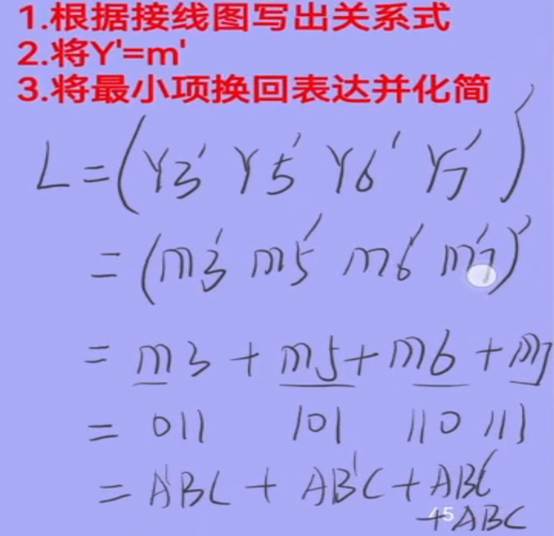 1.根据接线图写出关系式
2.将Y'=m'
3.将最小项换回表达并化简
L=(Y3' Y5' Y6' Y7')'
=(m3' m5' m6' m7')'
=m3+m5+m6+m7
=011 101 110 111
=A'BC+AB'C+ABC'
+ABC
45